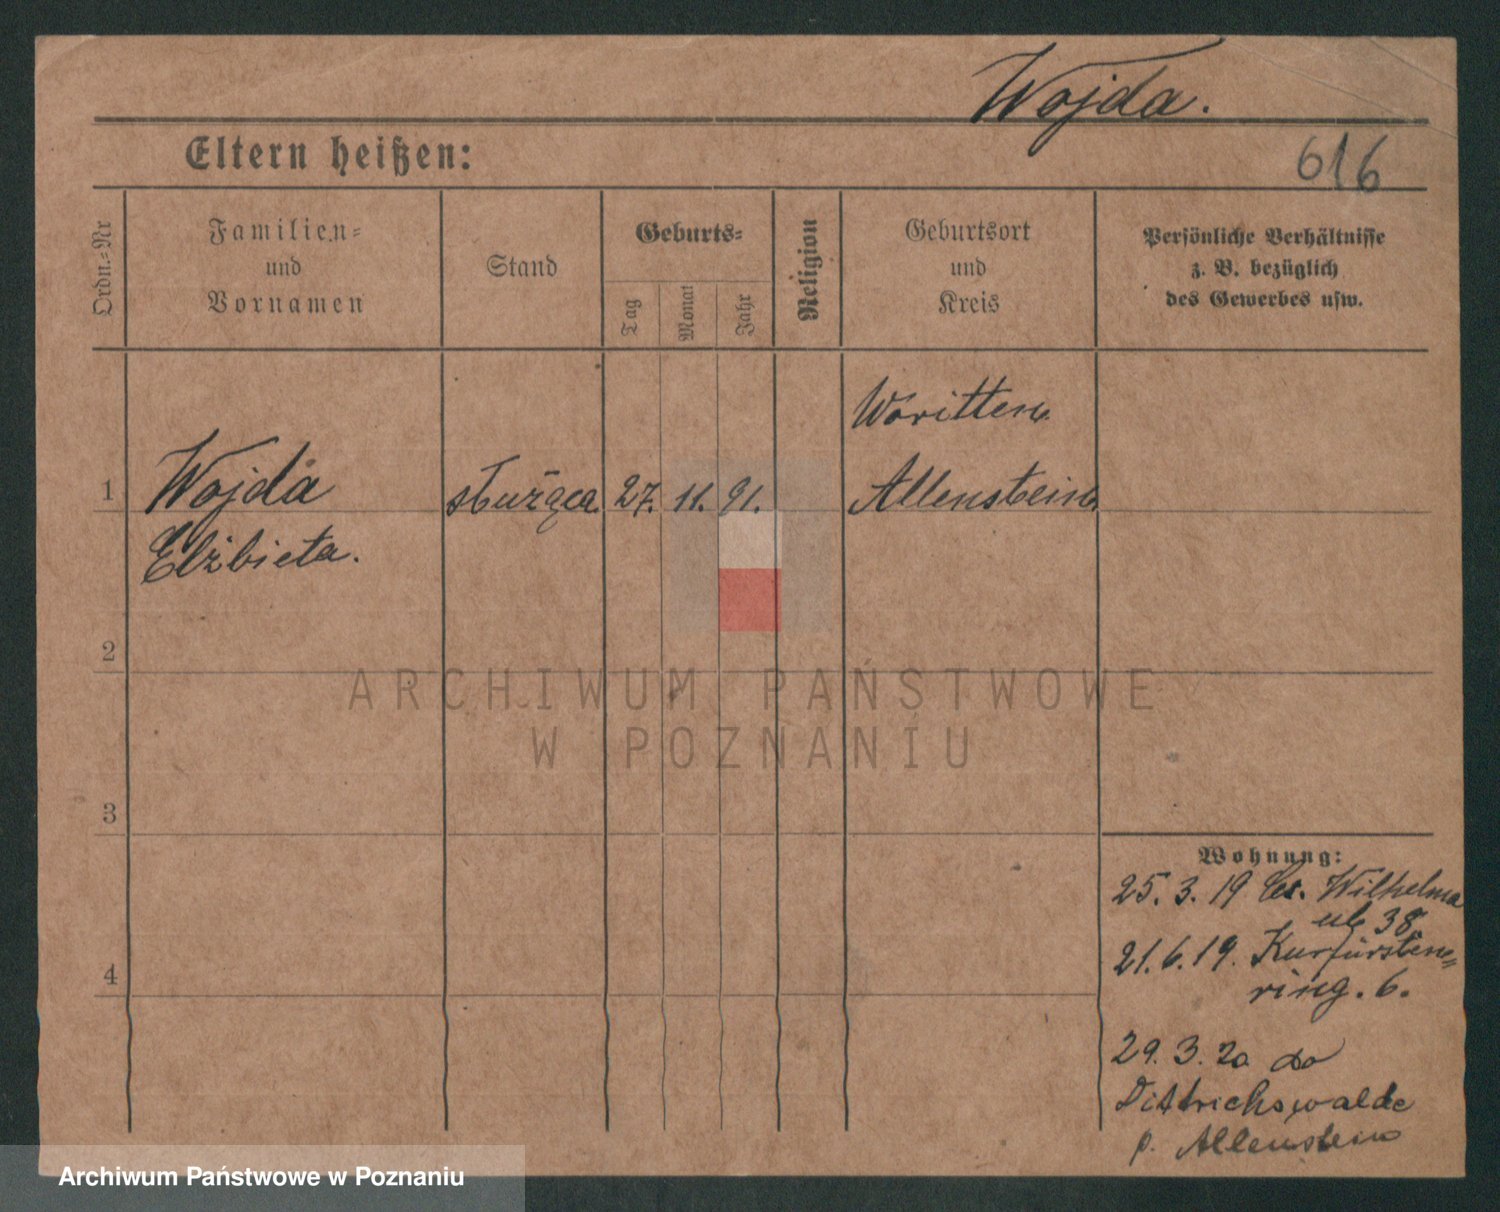 Wojda.
Eltern heißen:
616
Ordn.=Nr
Familien=
und
Vornamen
Stand
Geburts=
Tag
Monat
Jahr
Religion
Geburtsort
und
Kreis
Persönliche Verhältnisse
z. B. bezüglich
des Gewerbes usw.
Woritten
1 Wojda służąca 27. 11. 91. Allenstein
Elżbieta.
2
ARCHIWUM PAŃSTWOWE
W POZNANIU
3
4
Wohnung:
25. 3. 19 Ces. Wilhelma
ul. 38
21. 6. 19. Kurfürsten=
ring. 6.
29. 3. 20 do
Dittrichswalde
p. Allenstein
Archiwum Państwowe w Poznaniu